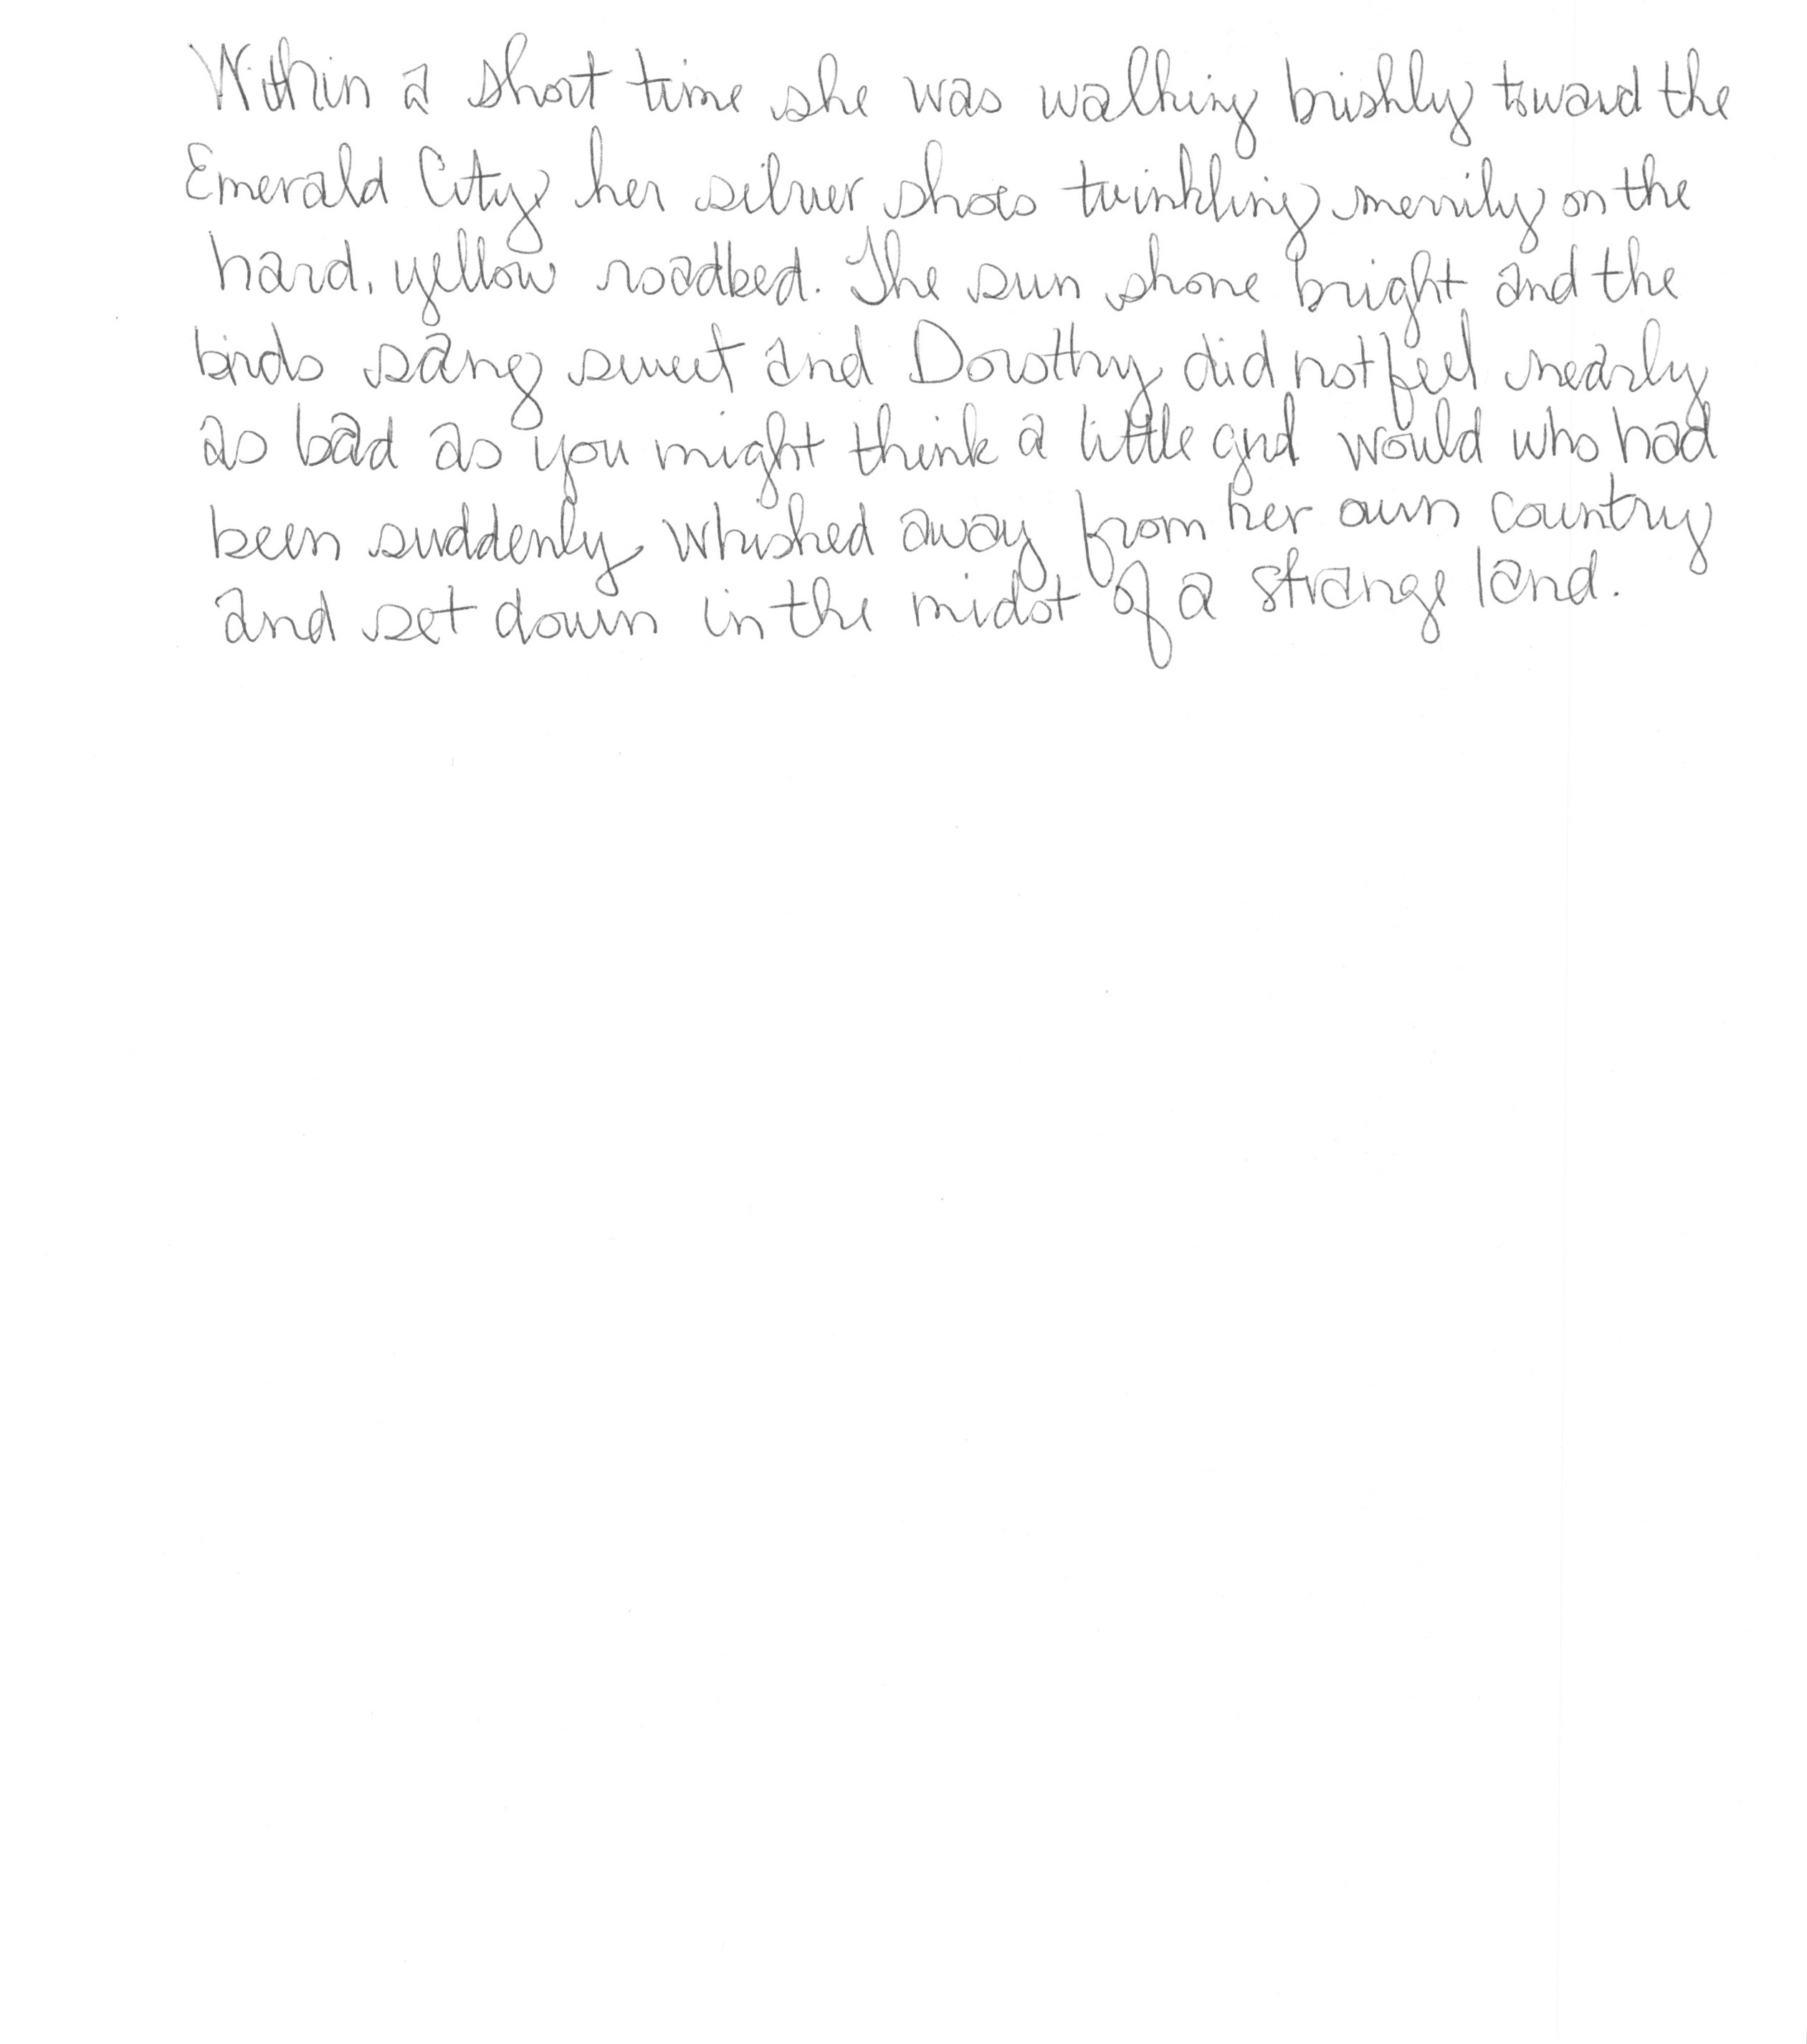 Within a short time she was walking briskly toward the
Emerald City, her silver shoes twinkling merrily on the
hard, yellow roadbed. The sun shone bright and the
birds sang sweet and Dorothy did not feel nearly
as bad as you might think a little girl would who had
been suddenly whisked away from her own country
and set down in the midst of a strange land.